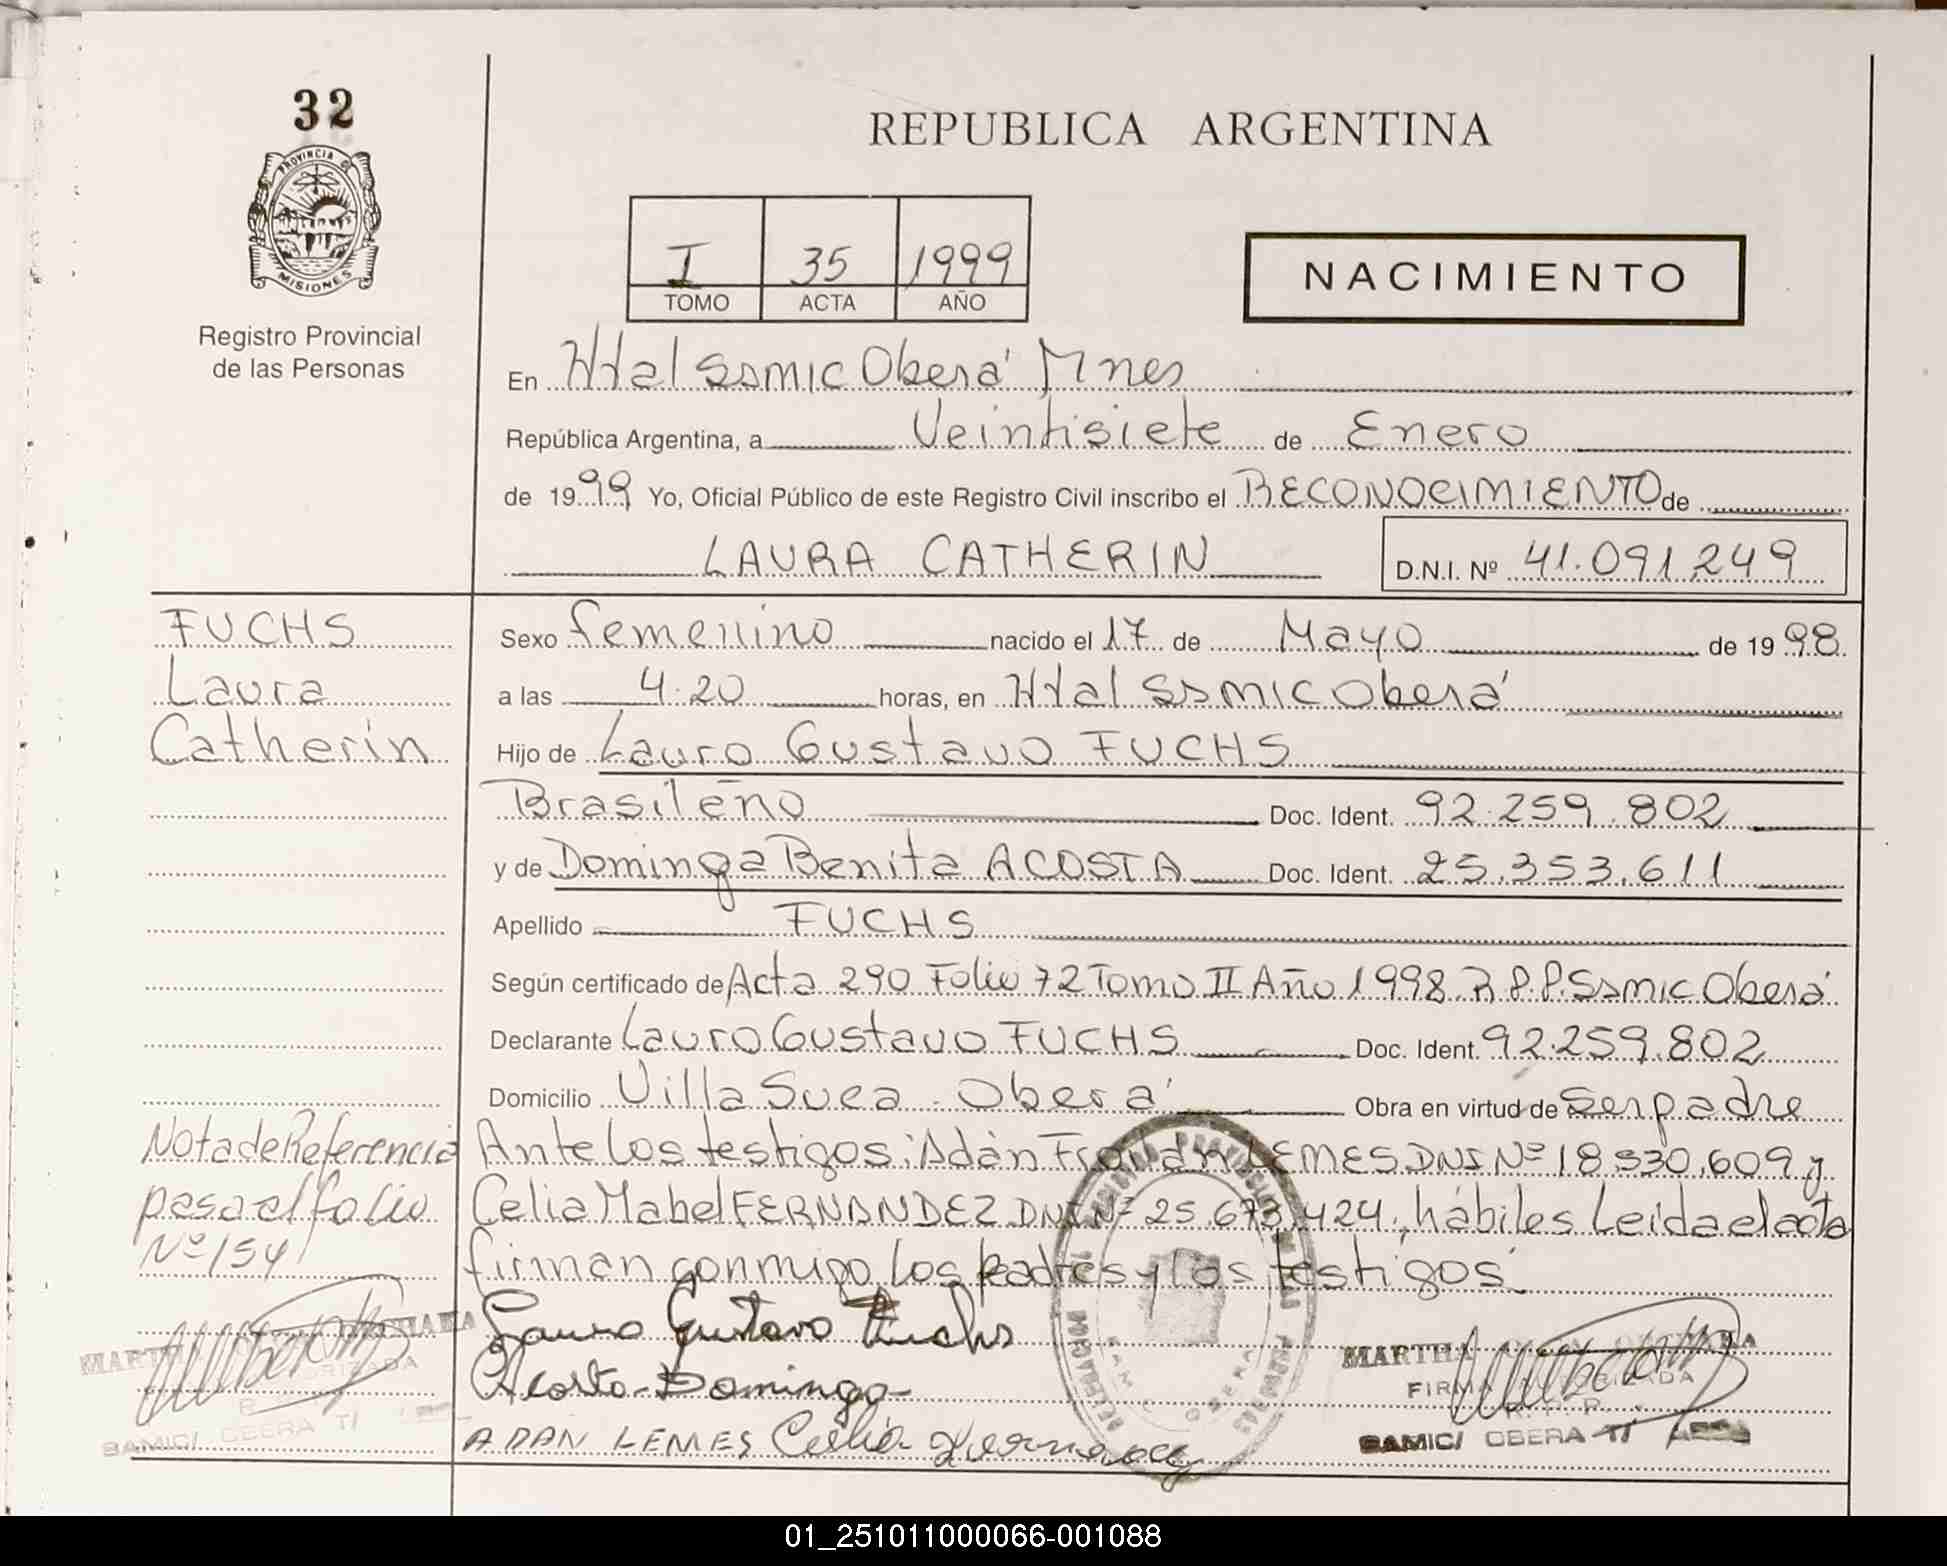 32
PROVINCIA DE MISIONES
Registro Provincial
de las Personas
REPUBLICA ARGENTINA
I 35 1999
TOMO ACTA AÑO
NACIMIENTO
En Htal Ssmic Oberá Mnes
República Argentina, a Veintisiete de Enero
de 1999 Yo, Oficial Público de este Registro Civil inscribo el RECONOCIMIENTO de
LAURA CATHERIN D.N.I. Nº 41.091.249
FUCHS
Laura
Catherin
Sexo femenino nacido el 17 de Mayo de 1998
a las 4.20 horas, en Htal Ssmic Oberá
Hijo de Lauro Gustavo FUCHS
Brasileño Doc. Ident. 92.259.802
y de Dominga Benita ACOSTA Doc. Ident. 25.353.611
Apellido FUCHS
Según certificado de Acta 290 Folio 72 Tomo II Año 1998 R.P.P. Ssmic Oberá
Declarante Lauro Gustavo FUCHS Doc. Ident. 92.259.802
Domicilio Villa Svea - Oberá Obra en virtud de Ser padre
Nota de Referencia
pasa al folio
Nº 154
Ante los testigos: Adán LEMES DNI Nº 18.530.609 y
Celia Mabel FERNANDEZ DNI Nº 25.673.424, hábiles Leida el acta
firman conmigo, los padres y los testigos.
Lauro Gustavo Fuchs
Acosta Dominga
ADAN LEMES Celia
MARTHA
FIRMA AUTORIZADA
R.P.P.
SAMIC/ OBERA
MARTHA
SAMIC/ OBERA
01_251011000066-001088